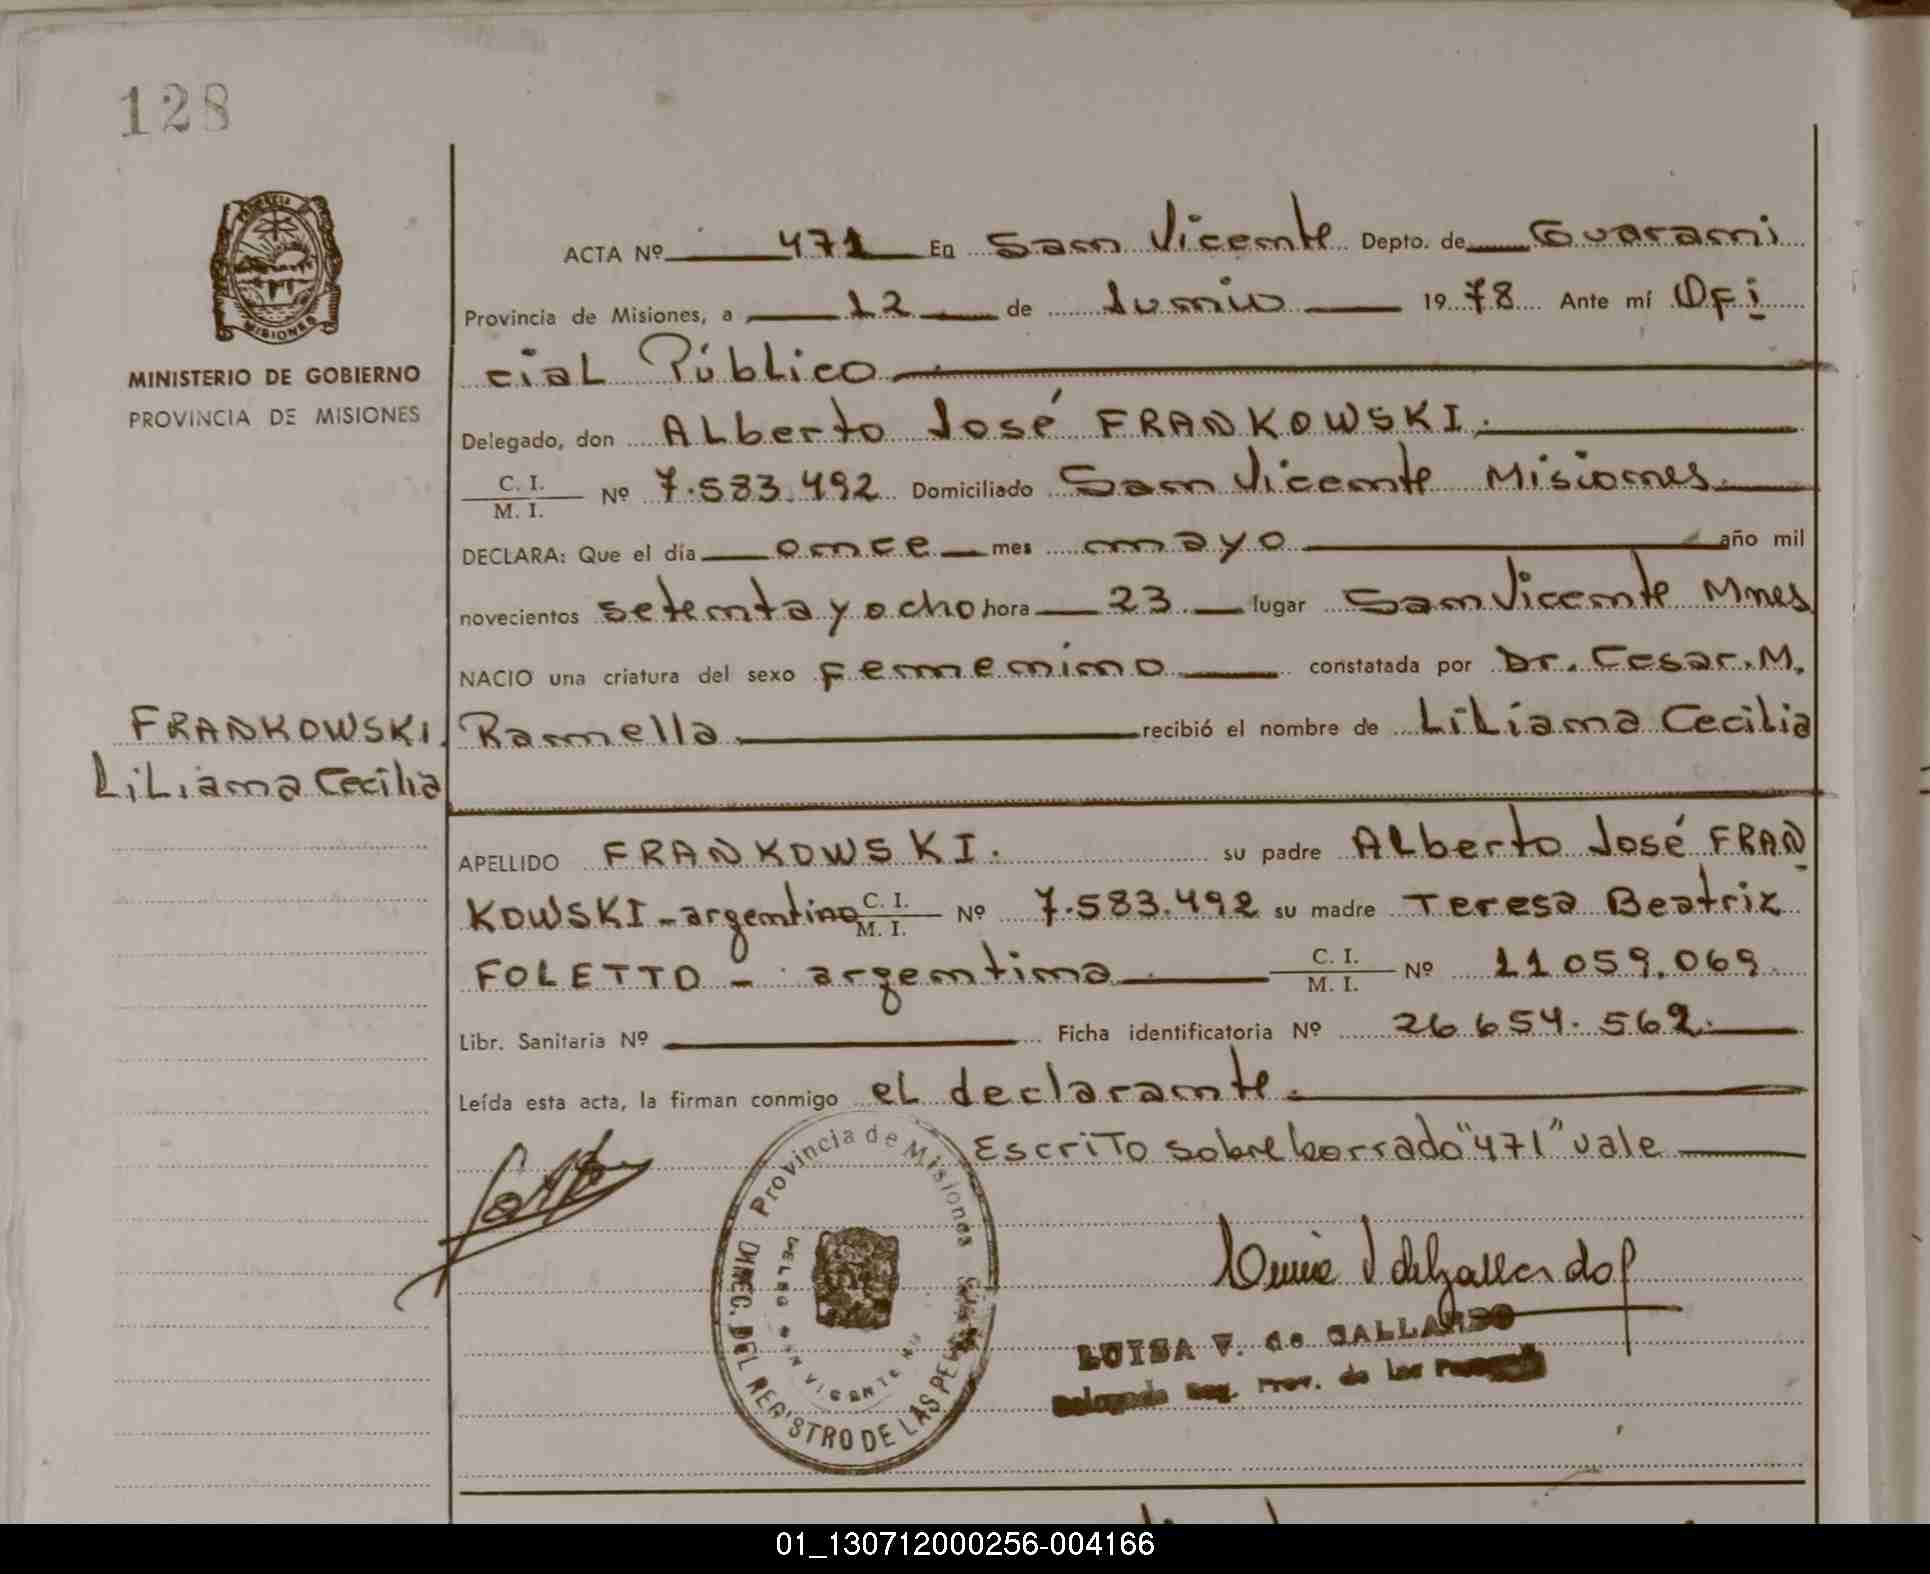 128
PROVINCIA DE
MISIONES
MINISTERIO DE GOBIERNO
PROVINCIA DE MISIONES
FRANKOWSKI
LiLiana Cecilia
ACTA Nº 471 En San Vicente Depto. de Guarani
Provincia de Misiones, a 12 de Junio 1978 Ante mí Ofi
cial Público
Delegado, don ALberto José FRANKOWSKI.
C. I.
M. I. Nº 7.583.492 Domiciliado San Vicente Misiones
DECLARA: Que el día once mes mayo año mil
novecientos setenta y ocho hora 23 lugar San Vicente Mnes
NACIO una criatura del sexo femenino constatada por Dr. Cesar. M.
Ramella recibió el nombre de LiLiana Cecilia
APELLIDO FRANKOWSKI. su padre ALberto José FRAN
KOWSKI - argentino C. I.
M. I. Nº 7.583.492 su madre Teresa Beatriz
FOLETTO - argentina C. I.
M. I. Nº 11 059.069
Libr. Sanitaria Nº Ficha identificatoria Nº 26 654.562.
Leída esta acta, la firman conmigo eL declarante.
Escrito sobre borrado "471" vale
Provincia de Misiones
DIREC. DEL REGISTRO DE LAS PE
SAN VICENTE
LUISA V. de GALLARDO
Delegada Reg. Prov. de las
01_130712000256-004166